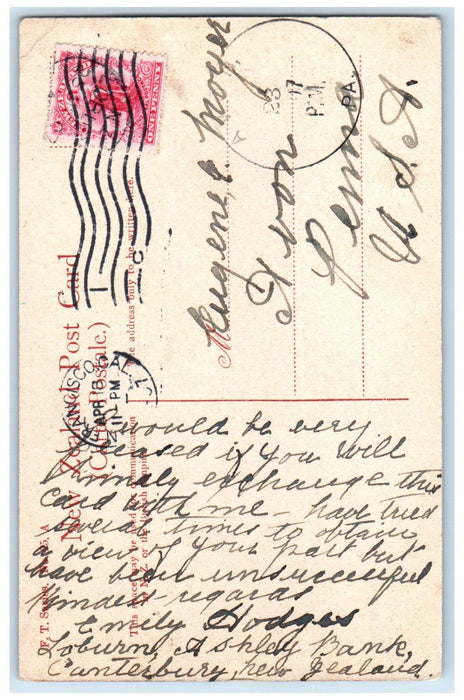 New Zealand Post Card
(Carte Postale.)
The address only to be written here.
This space may be used for communication
F. T. Series. No.
NEW ZEALAND
FRANCISCO, CAL.
APR 18
11 PM
23
17
P.M.
PA.
M Eugene C Moyer
Avon
Penna
U S A.
I would be very
pleased if you will
kindly exchange this
card with me - have tried
several times to obtain
a view of your part but
have been unsuccessful
Kindest regards
Emily Hodges
Loburn, Ashley Bank,
Canterbury, New Zealand.